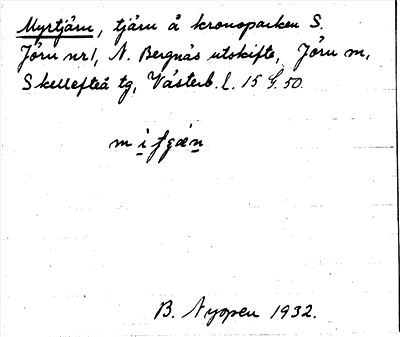 Myrtjärn, tjärn å kronoparken S.
Jörn nr 1, N. Bergnäs utskifte, Jörn sn,
Skellefteå tg, Västerb. l. 15 G. 50.
B. Nyopen 1932.